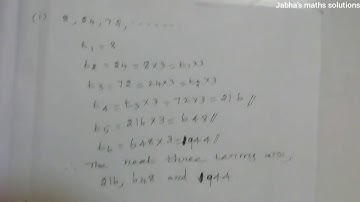 Jabha's maths solutions
(i) 8, 24, 72, .......
t₁ = 8
t₂ = 24 = 8×3 = t₁×3
t₃ = 72 = 24×3 = t₂×3
t₄ = t₃×3 = 72×3 = 216 //
t₅ = 216×3 = 648 //
t₆ = 648×3 = 1944 //
∴ The next three terms are,
216, 648 and 1944